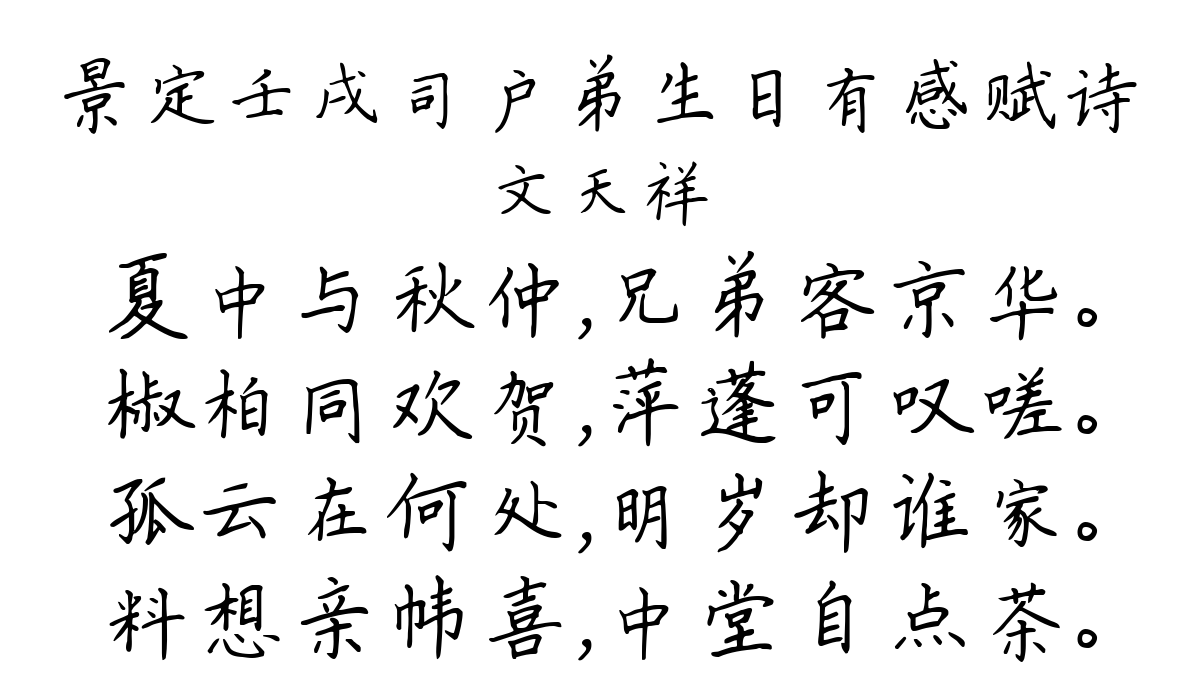 景定壬戌司户弟生日有感赋诗
文天祥
夏中与秋仲,兄弟客京华。
椒柏同欢贺,萍蓬可叹嗟。
孤云在何处,明岁却谁家。
料想亲帏喜,中堂自点茶。